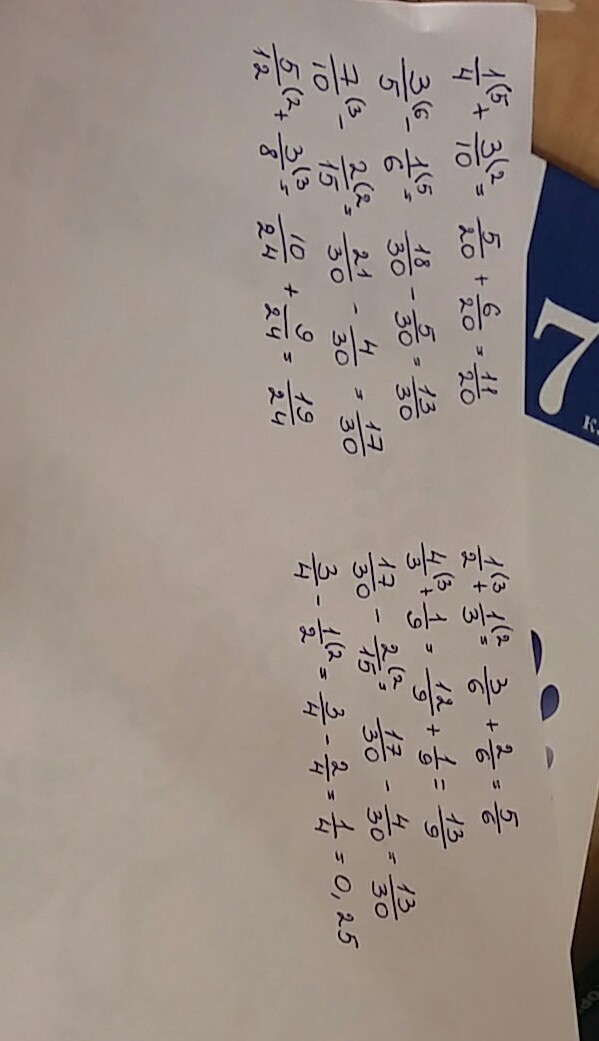 1/4(5 + 3/10(2 = 5/20 + 6/20 = 11/20
3/5(6 - 1/6(5 = 18/30 - 5/30 = 13/30
7/10(3 - 2/15(2 = 21/30 - 4/30 = 17/30
5/12(2 + 3/8(3 = 10/24 + 9/24 = 19/24
1/2(3 + 1/3(2 = 3/6 + 2/6 = 5/6
4/3(3 + 1/9 = 12/9 + 1/9 = 13/9
17/30 - 2/15(2 = 17/30 - 4/30 = 13/30
3/4 - 1/2(2 = 3/4 - 2/4 = 1/4 = 0,25
7